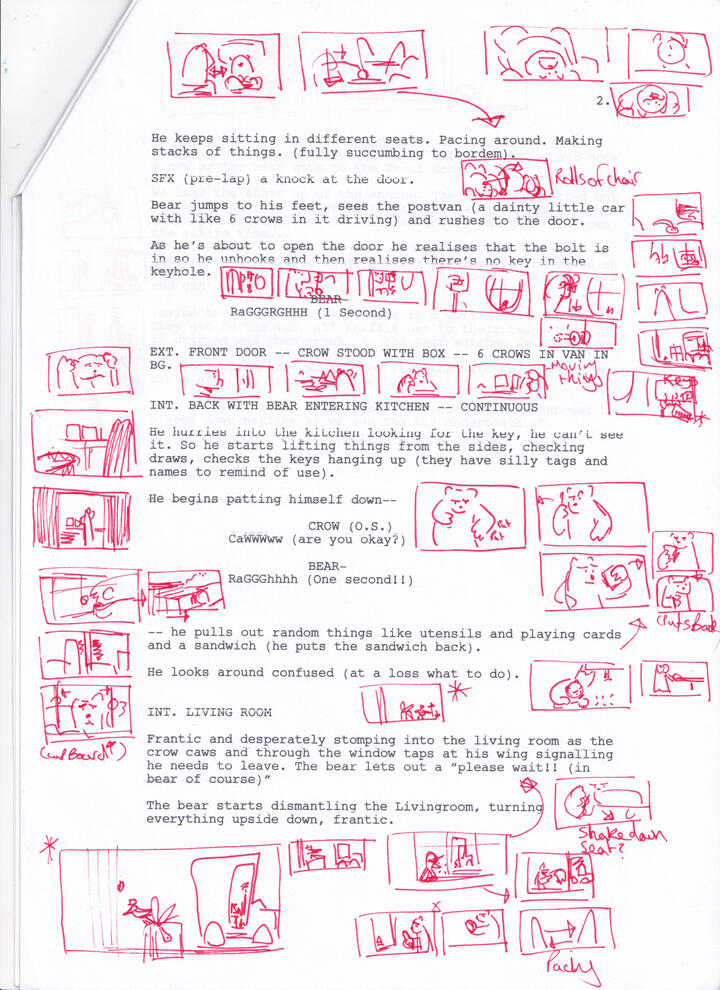 2.
He keeps sitting in different seats. Pacing around. Making
stacks of things. (fully succumbing to bordem).
SFX (pre-lap) a knock at the door.
Rolls of chair
Bear jumps to his feet, sees the postvan (a dainty little car
with like 6 crows in it driving) and rushes to the door.
As he's about to open the door he realises that the bolt is
in so he unhooks and then realises there's no key in the
keyhole.
BEAR-
RaGGGRGHHH (1 Second)
EXT. FRONT DOOR -- CROW STOOD WITH BOX -- 6 CROWS IN VAN IN
BG.
Moving
things
Keys
INT. BACK WITH BEAR ENTERING KITCHEN -- CONTINUOUS
He hurries into the kitchen looking for the key, he can't see
it. So he starts lifting things from the sides, checking
draws, checks the keys hanging up (they have silly tags and
names to remind of use).
He begins patting himself down--
Pat
Pat
CROW (O.S.)
CaWWWww (are you okay?)
BEAR-
RaGGGhhhh (One second!!)
Puts Back
-- he pulls out random things like utensils and playing cards
and a sandwich (he puts the sandwich back).
He looks around confused (at a loss what to do).
INT. LIVING ROOM
(cupBoard)
Frantic and desperately stomping into the living room as the
crow caws and through the window taps at his wing signalling
he needs to leave. The bear lets out a "please wait!! (in
bear of course)"
The bear starts dismantling the Livingroom, turning
everything upside down, frantic.
Shakedown
Seat?